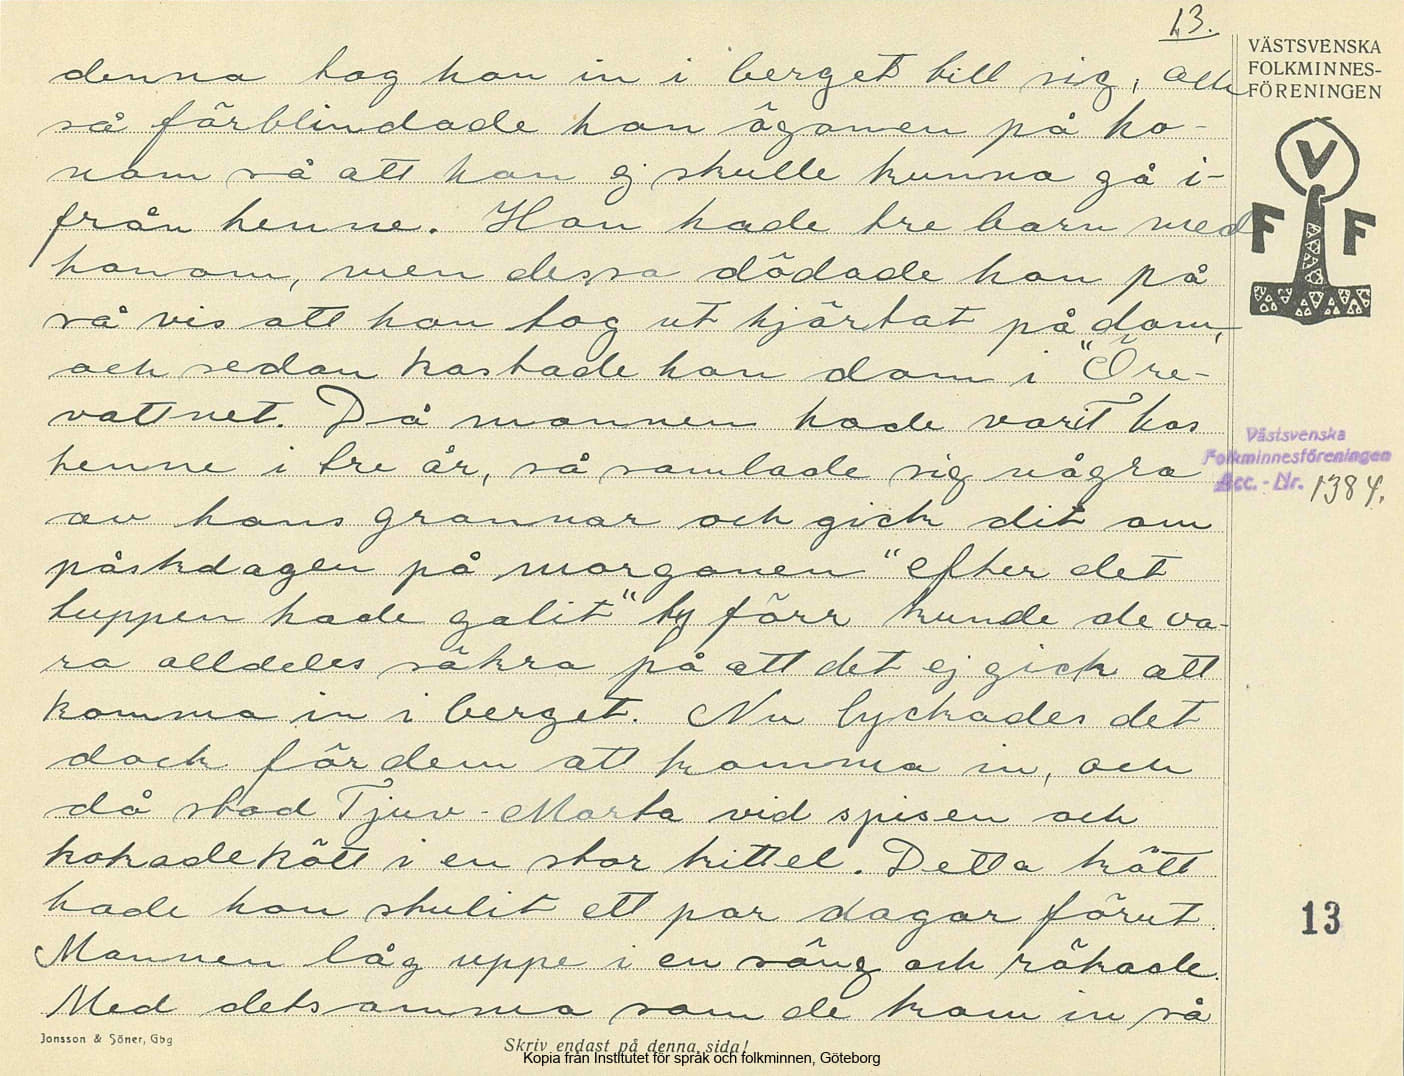 13.
denna tog hon in i berget till sig, och
så förblindade hon ögonen på ho-
nom så att han ej skulle kunna gå i-
från henne. Hon hade tre barn med
honom, men dessa dödade hon på
så vis att hon tog ut hjärtat på dom,
och sedan kastade hon dom i "Öre-
vattnet. Då mannen hade varit hos
henne i tre år, så samlade sig några
av hans grannar och gick dit om
påskdagen på morgonen "efter det
tuppen hade galit" ty förr kunde de va-
ra alldeles säkra på att det ej gick att
komma in i berget. Nu lyckades det
dock för dem att komma in, och
då stod Tjuv-Marta vid spisen och
kokade kött i en stor kittel. Detta kött
hade hon stulit ett par dagar förut.
Mannen låg uppe i en säng och rökade.
Med detsamma som de kom in så
VÄSTSVENSKA
FOLKMINNES-
FÖRENINGEN
V
F F
Västsvenska
Folkminnesföreningen
Acc. - Nr. 1384.
13
Jonsson & Söner, Gbg
Skriv endast på denna sida!
Kopia från Institutet för språk och folkminnen, Göteborg